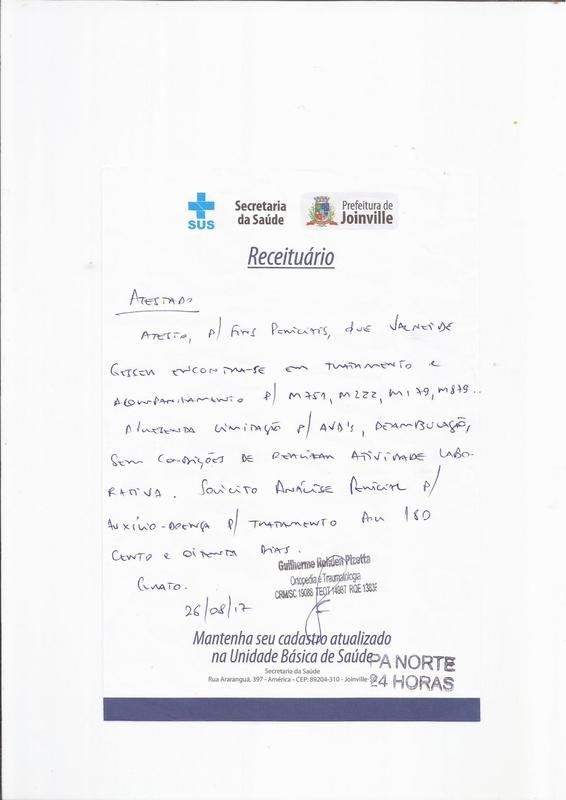 SUS
Secretaria
da Saúde
Prefeitura de
Joinville
Receituário
ATESTADO
ATESTO, P/ FINS PERICIAIS, QUE VALNEIDE
ENCONTRA-SE EM TRATAMENTO E
ACOMPANHAMENTO P/ M751, M222, M179, M879..
APRESENTA LIMITAÇÃO P/ AVD'S, DEAMBULAÇÃO,
SEM CONDIÇÕES DE REALIZAR ATIVIDADE LABO-
RATIVA. SOLICITO ANÁLISE PERICIAL P/
AUXÍLIO-DOENÇA P/ TRATAMENTO 180
CENTO E OITENTA DIAS.
GRATO.
26/08/17
Guilherme Rohden Pizetta
Ortopedia e Traumatologia
CRM/SC 19086 TEOT 14987 RQE
Mantenha seu cadastro atualizado
na Unidade Básica de Saúde
Secretaria da Saúde
Rua Araranguá, 397 - América - CEP: 89204-310 - Joinville-SC
PA NORTE
24 HORAS